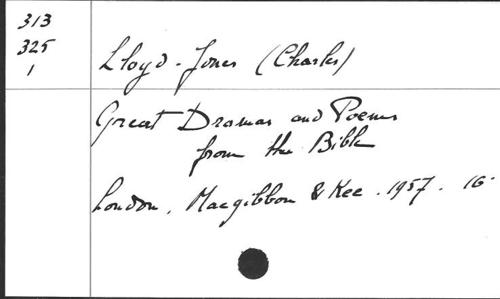 313
325
1
Lloyd-Jones (Charles)
Great Dramas and Poems
from the Bible
London, Macgibbon & Kee. 1957. 16°